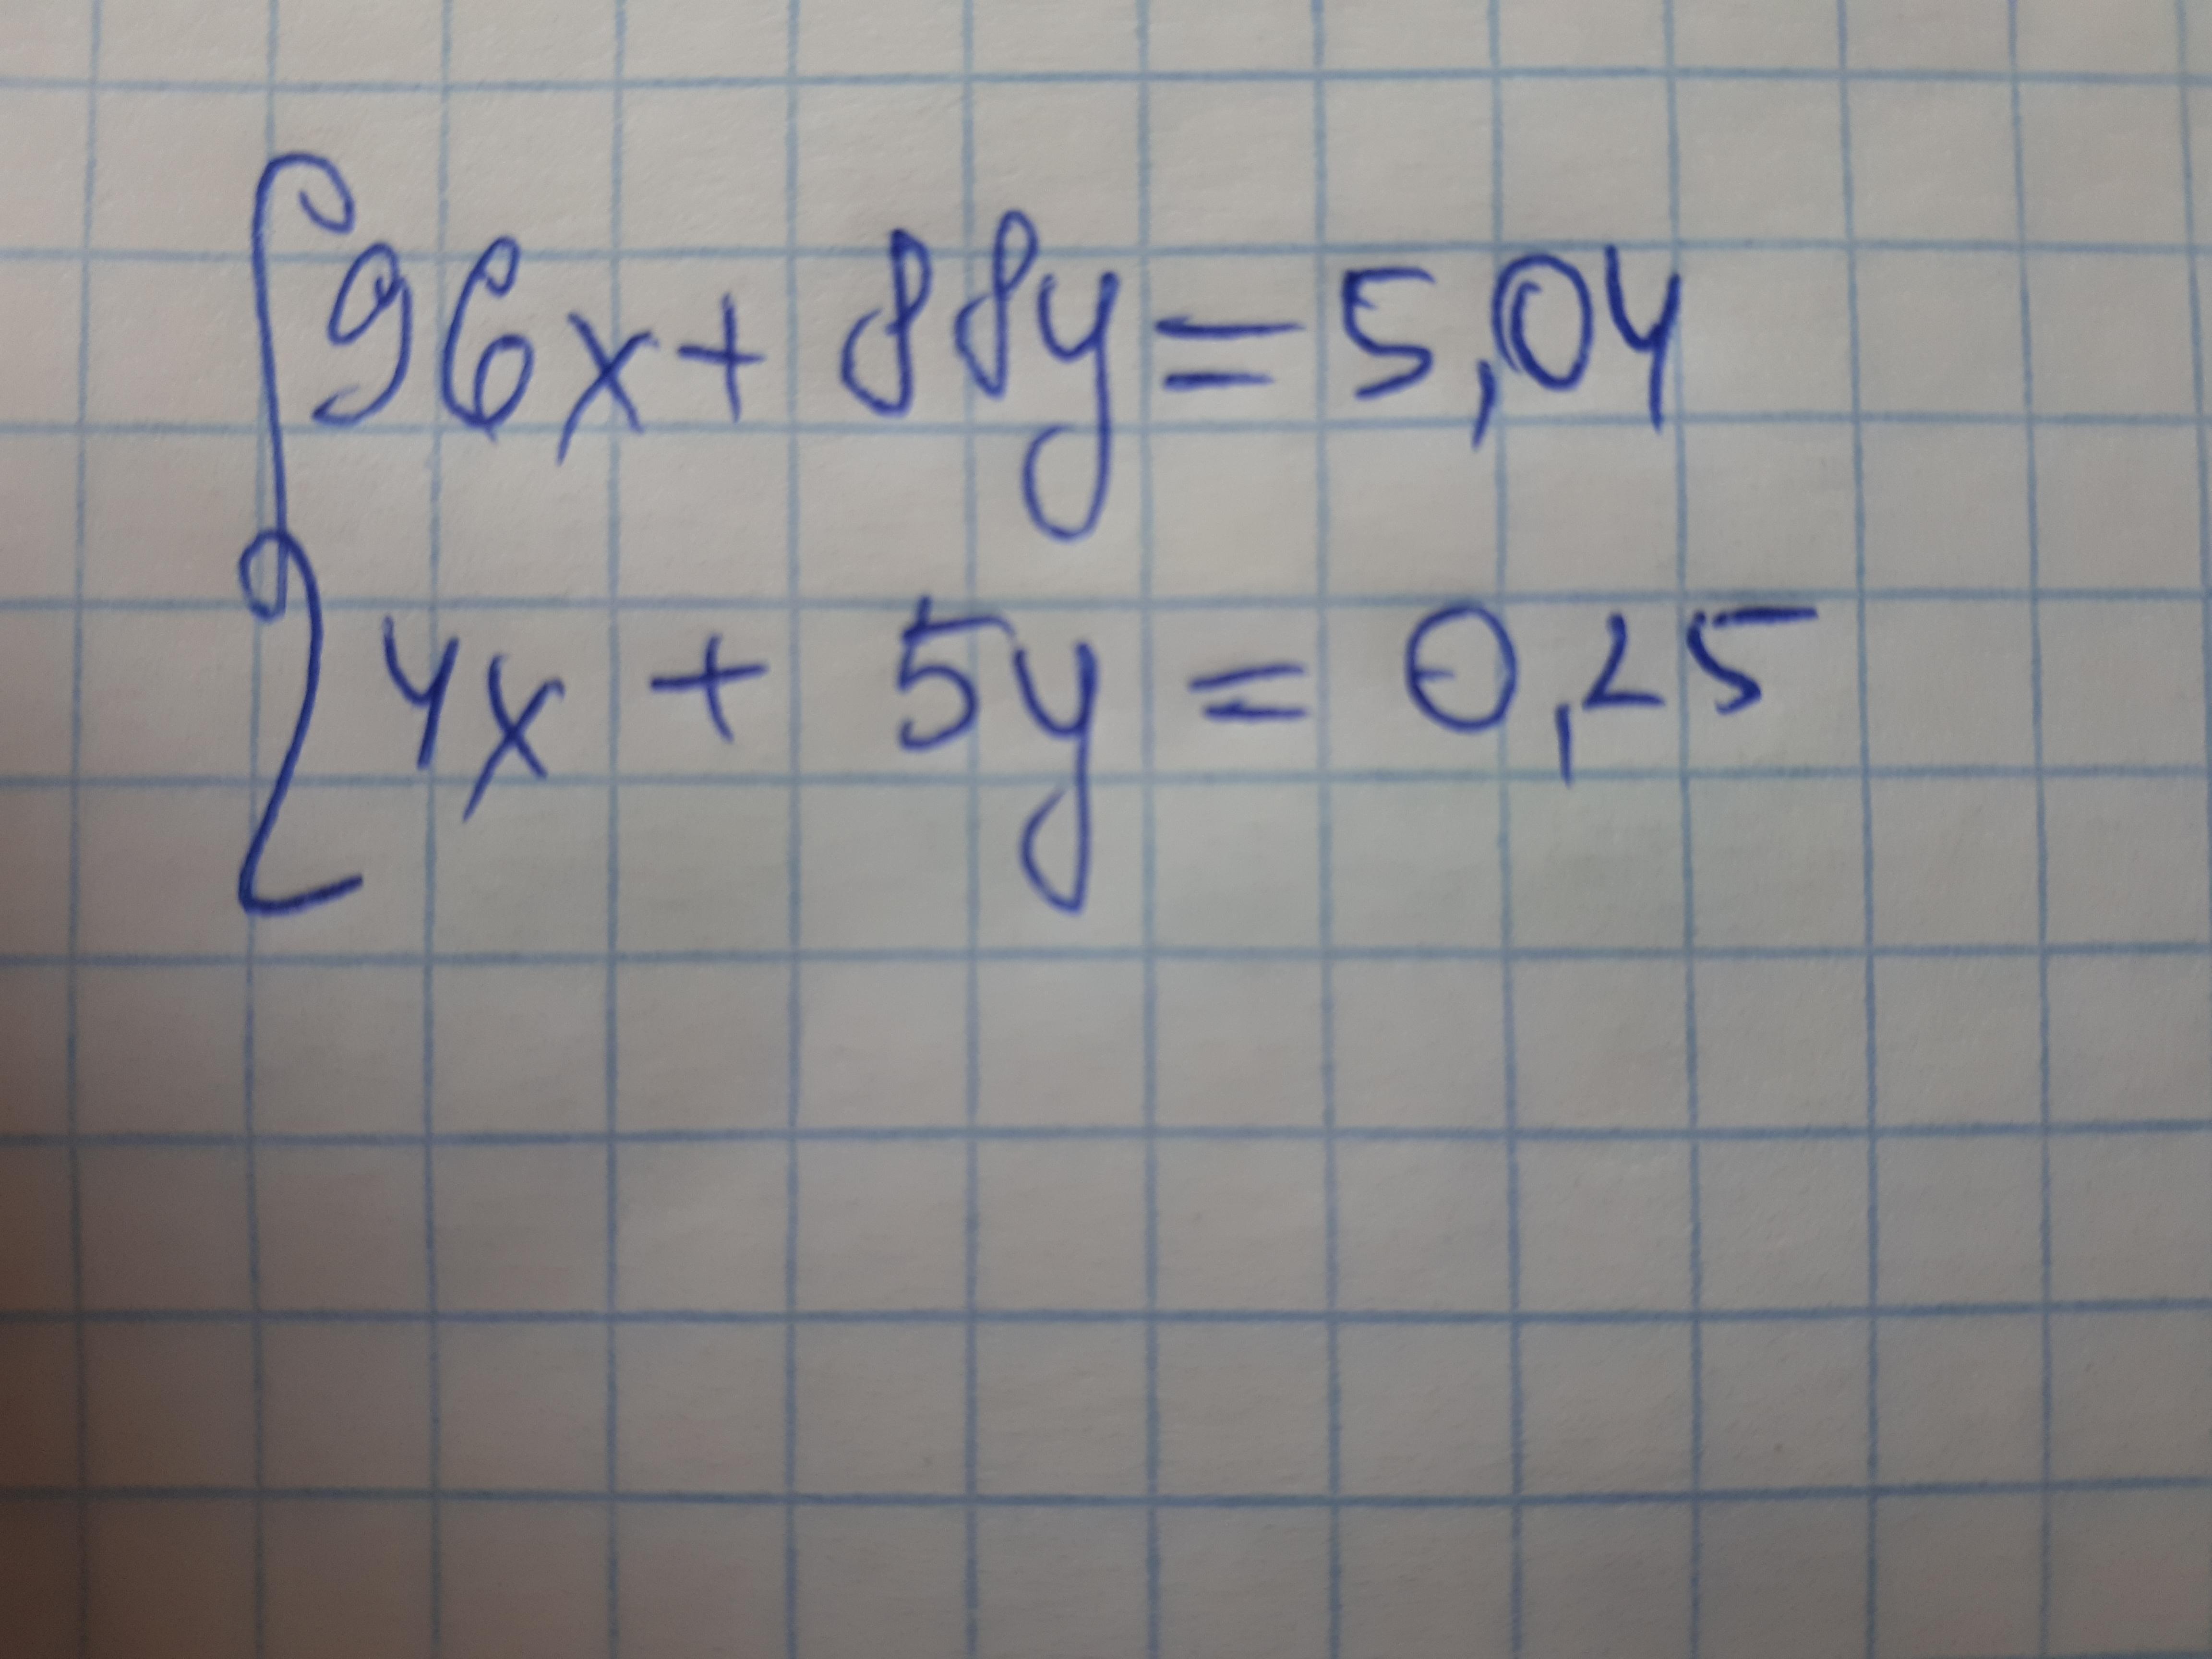 96x + 88y = 5,04
4x + 5y = 0,25